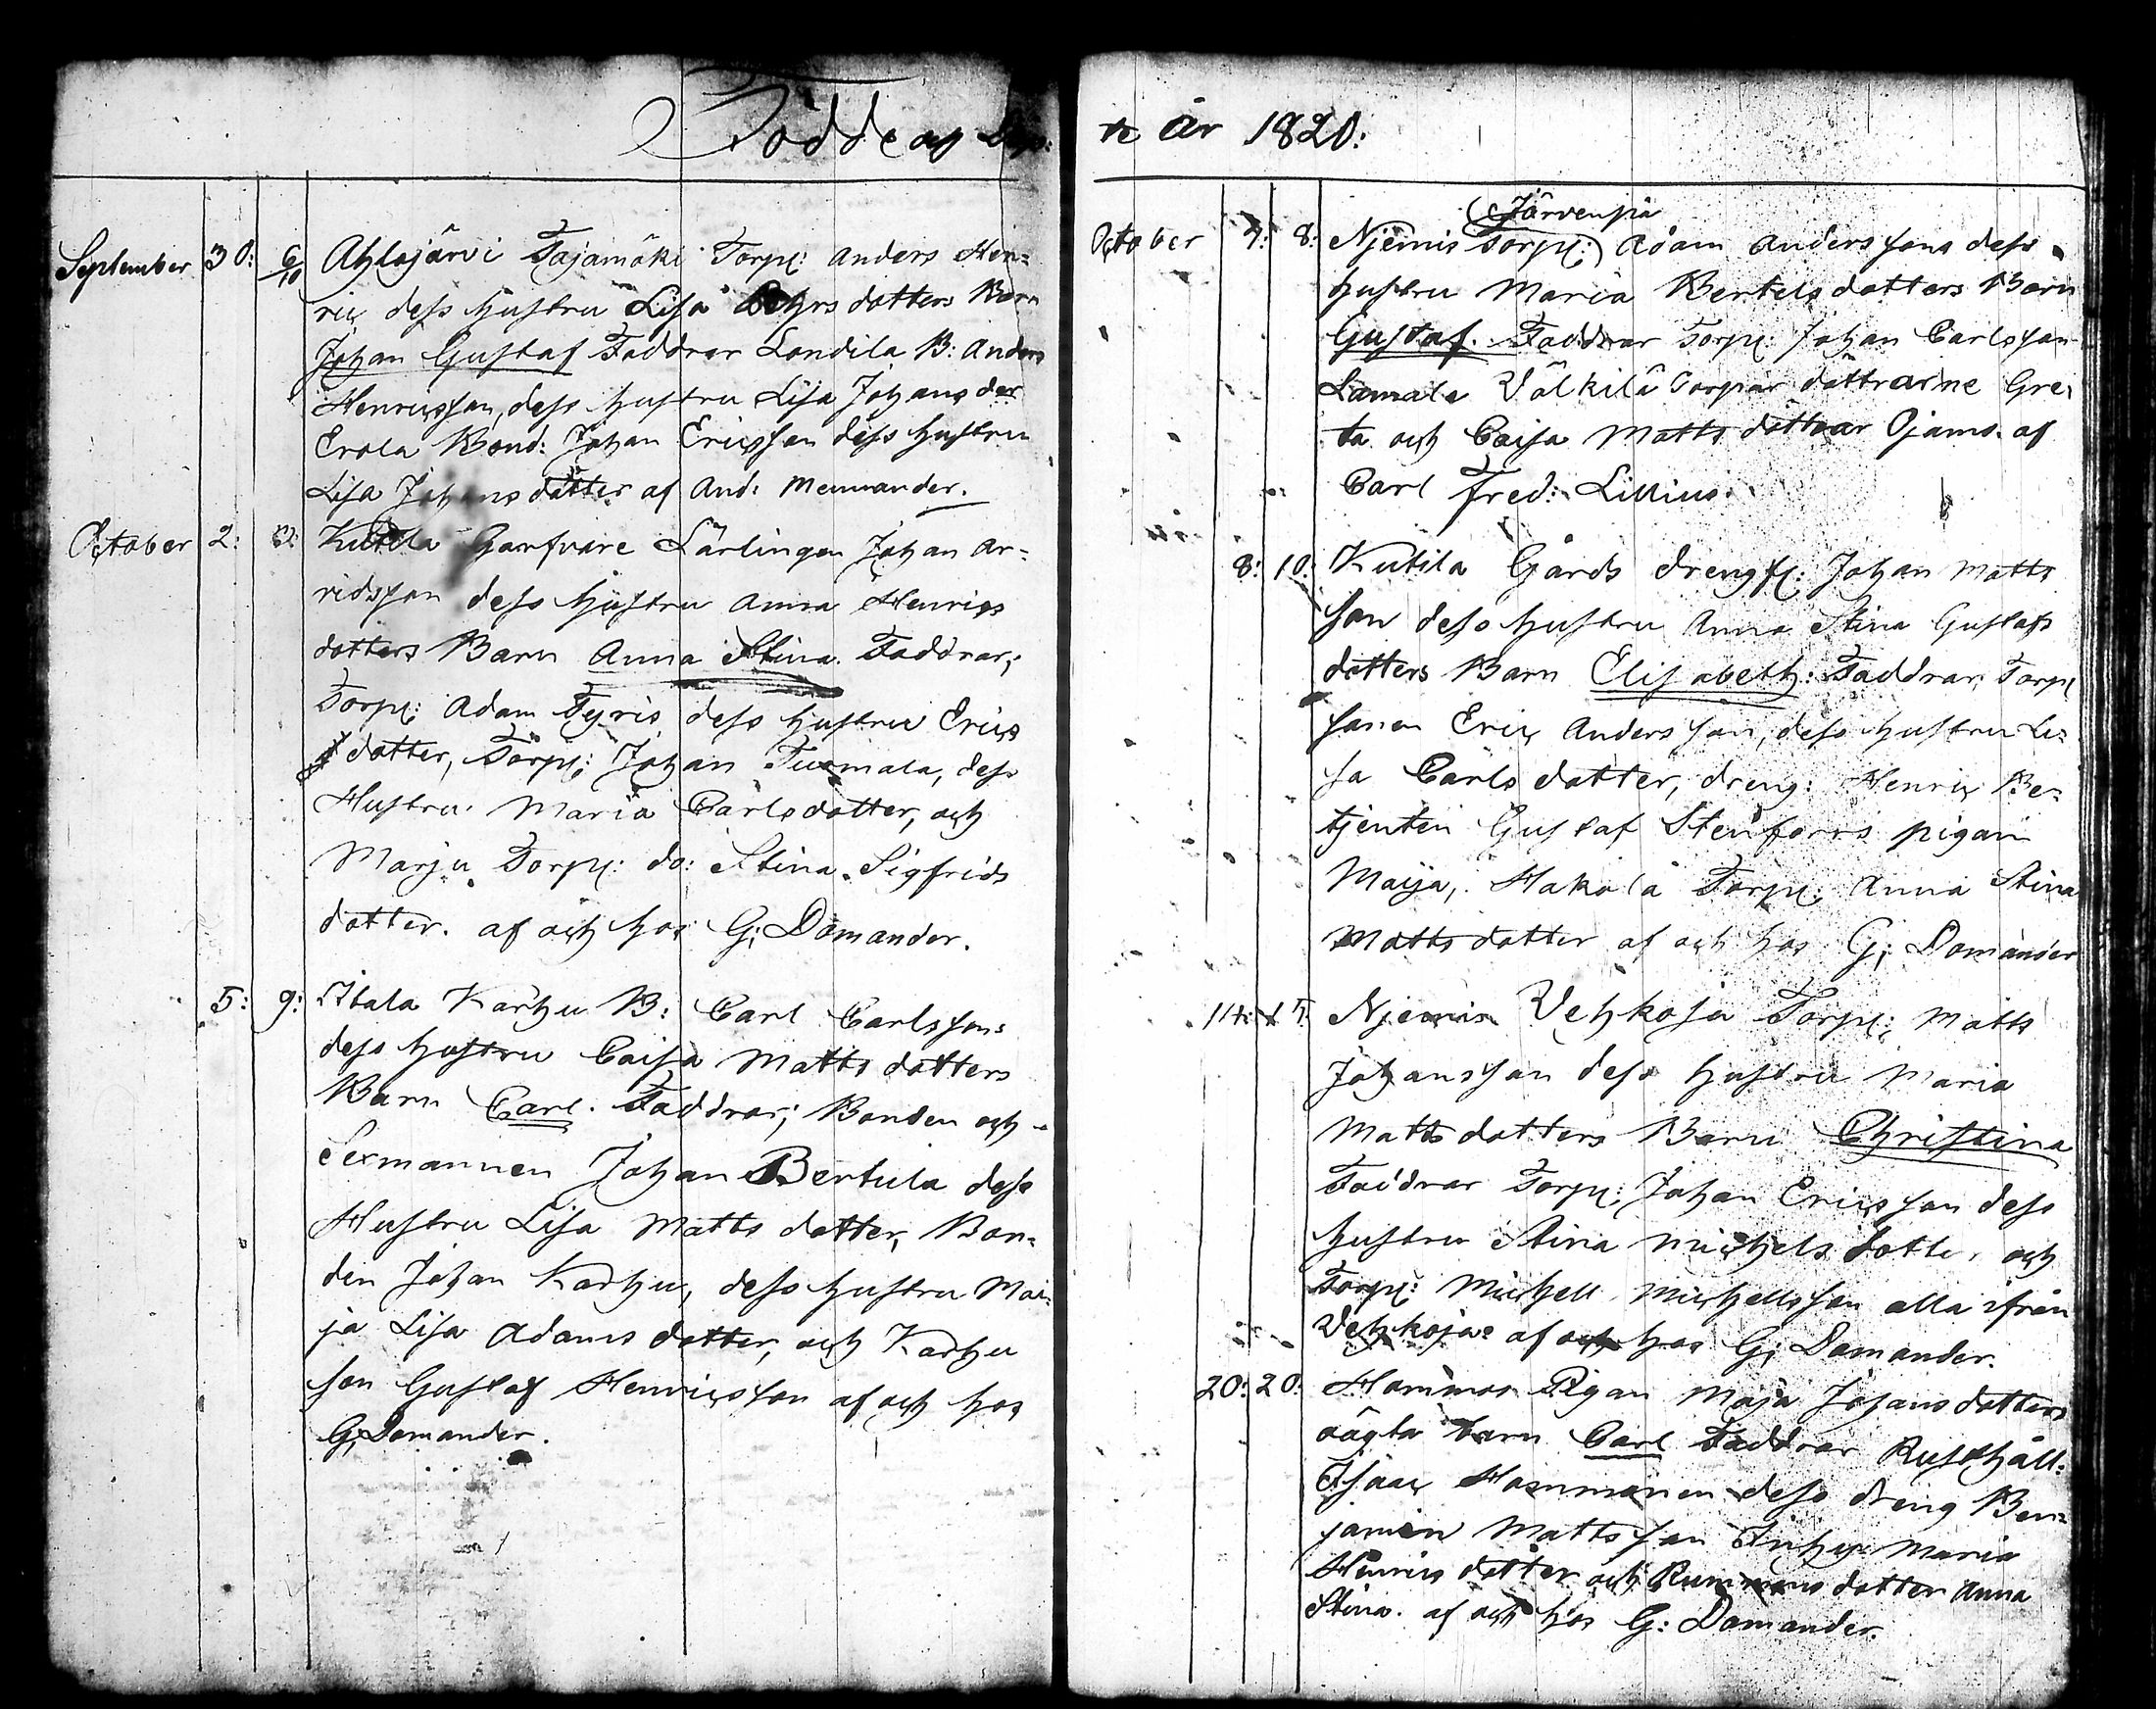 Födde och Döp:
September 30: 6/10 Ahlajärvi Tajamäki Torp: Anders Hen=
ric dess hustru Lisa dotters Barn
Johan Gustaf Faddrar Londila B: Anders
Henricsson, dess hustru Lisa Johans der
Erola Bond: Johan Ericsson dess hustru
Lisa Johans dotter af And: Mennander.
October 2: 3: Kutila Garfvare Lärlingen Johan Ar=
vidsson dess hustru Anna Henrics
dotters Barn Anna Stina. Faddrar;
Torp: Adam Tyris dess hustru Erics
dotter, Torp: Johan Tuomala, dess
Hustru Maria Carlsdotter, och
Marju Torp: do: Stina Sigfrids
dotter. af och hos G; Domander.
5: 9: Itala Karhu B: Carl Carlssons
dess hustru Caisa Matts dotters
Barn Carl. Faddrar; Bonden och
Sexmannen Johan Bertula dess
Hustru Lisa Matts dotter, Bon=
den Johan Karhu, dess hustru Mai=
ja Lisa Adams dotter, och Karhu
son Gustaf Henricsson af och hos
G; Domander.
te År 1820:
Järvenpä
October 7: 8: Njemis Torp: Adam Anderssons dess
hustru Maria Bertels dotters Barn
Gustaf. Faddrar Torp: Johan Carlsson
Lamala Välkilä Torpar döttrarne Gre=
ta och Caisa Matts döttrar Ojams. af
Carl Fred: Lillius.
8: 10: Kutila Gårds drengk: Johan Matts
son dess hustru Anna Stina Gustafs
dotters Barn Elisabeth: Faddrar: Torp
sonen Eric Andersson, dess hustru Li=
sa Carls dotter, dreng: Henric Be=
tjenten Gustaf Stenfors pigan
Maija, Hakola Torp: Anna Stina
Matts dotter af och hos G; Domander
14: 15: Njemis Vehkoja Torp: Matts
Johansson dess hustru Maria
Matts dotters Barn Christina
Faddrar Torp: Johan Ericsson dess
hustru Stina Michels dotter och
Torp: Michell Michellsson alla ifrån
Vehkoja: af och hos G; Domander.
20: 20: Hammos Pigan Maja Johans dotters
oägta barn Carl Faddrar Rusthåll:
Isaac Hammonen dess dreng Ben=
jamin Mattsson Maria
Henrics dotter och dotter Anna
Stina. af och hos G: Domander.